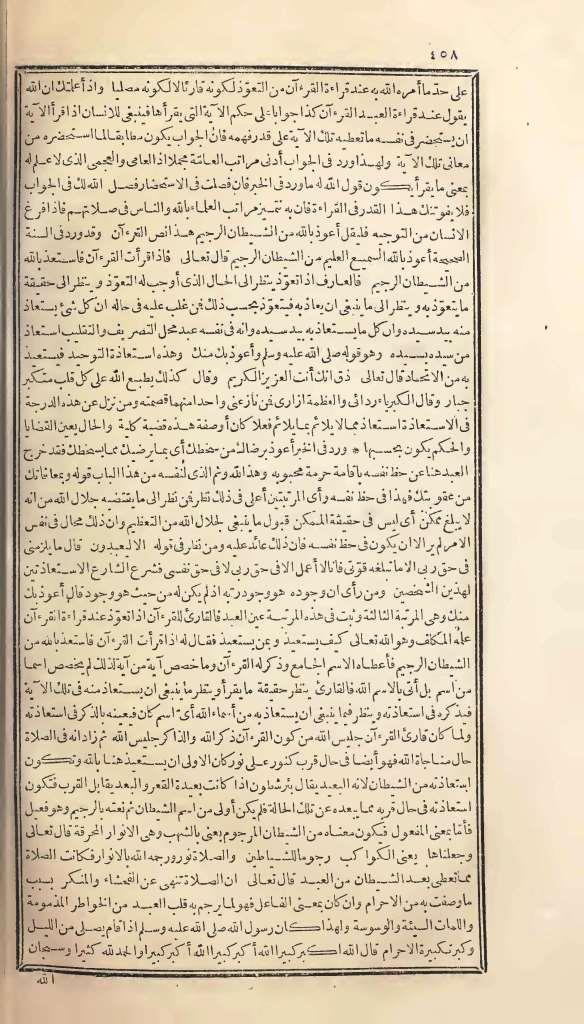 ٤٥٨
على حد ما أمره الله به عند قراءة القرءآن من التعوّذ لكونه قارئا لا لكونه مصليا واذ أعلمتك ان الله
يقول عند قراءة العبد القرءآن كذا جوابا على حكم الآية التى يقرأها فينبغى للانسان اذا قرأ الآية
ان يستحضر فى نفسه ما تعطيه تلك الآية على قدر فهمه فان الجواب يكون مطابقا لما استحضره من
معانى تلك الآية ولهذا ورد فى الجواب أدنى مراتب العامّة مجملا اذ العامى والعجمى الذى لا علم له
بمعنى ما يقرأ يكون قول الله له ما ورد فى الخبر فان فصلت فى الاستحضار فصل الله لك فى الجواب
فلا يفوتنك هذا القدر فى القراءة فان به تتميز مراتب العلماء بالله والناس فى صلاتهم فاذا فرغ
الانسان من التوجيه فليقل أعوذ بالله من الشيطان الرجيم هذا نص القرءآن وقد ورد فى السنة
الصحيحة أعوذ بالله السميع العليم من الشيطان الرجيم قال تعالى فاذا قرأت القرءآن فاستعذ بالله
من الشيطان الرجيم فالعارف اذا تعوّذ ينظر الى الحال الذى أوجب له التعوّذ وينظر الى حقيقة
ما يتعوّذ به وينظر الى ما ينبغى ان يعاذ به فيتعوّذ بحسب ذلك فمن غلب عليه فى حاله ان كل شئ يستعاذ
منه بيد سيده وان كل ما يستعاذ به بيد سيده وانه فى نفسه عبد محل التصريف والتقليب استعاذ
من سيده بسيده وهو قوله صلى الله عليه وسلم وأعوذ بك منك وهذه استعاذة التوحيد فيستعيذ
به من الاتحاد قال تعالى ذق انك أنت العزيز الكريم وقال كذلك يطبع الله على كل قلب متكبر
جبار وقال الكبرياء ردائى والعظمة ازارى فمن نازعنى واحدا منهما قصمته ومن نزل عن هذه الدرجة
فى الاستعاذة استعاذ مما لا يلائم بما يلائم فعلا كان أو صفة هذه قضية كلية والحال يعين القضايا
والحكم يكون بحسبها * ورد فى الخبر أعوذ برضاك من سخطك أى بما يرضيك مما يسخطك فقد خرج
العبد هنا عن حظ نفسه باقامة حرمة محبوبه وهذا لله وثم الذى لنفسه من هذا الباب قوله وبمعافاتك
من عقوبتك فهذا فى حظ نفسه وأى المرتبتين أعلى فى ذلك نظر فمن نظر الى ما يقتضيه جلال الله من انه
لا يبلغ ممكن أى ليس فى حقيقة الممكن قبول ما ينبغى لجلال الله من التعظيم وان ذلك محال فى نفس
الامر لم ير الا ان يكون فى حظ نفسه فان ذلك عائد عليه ومن نظر فى قوله الا ليعبدون قال ما يلزمنى
فى حق ربى الا ما تبلغه قوّتى فانا لا أعمل الا فى حق ربى لا فى حق نفسى فشرع الشارع الاستعاذتين
لهذين الشخصين ومن رأى ان وجوده هو وجود ربه اذ لم يكن له من حيث هو وجود قال أعوذ بك
منك وهى المرتبة الثالثة وثبت فى هذه المرتبة عين العبد فالقارئ للقرءآن اذا تعوّذ عند قراءة القرءآن
علمه المكلف وهو الله تعالى كيف يستعيذ وبمن يستعيذ فقال له اذا قرأت القرءآن فاستعذ بالله من
الشيطان الرجيم فأعطاه الاسم الجامع وذكر له القرءآن وما خصص آية من آية لذلك لم يخصص اسما
من اسم بل أتى بالاسم الله فالقارئ ينظر حقيقة ما يقرأ وينظر ما ينبغى ان يستعاذ منه فى تلك الآية
فيذكره فى استعاذته وينظر فيما ينبغى ان يستعاذ به من أسماء الله أىّ اسم كان فيعينه بالذكر فى استعاذته
ولما كان قارئ القرءآن جليس الله من كون القرءآن ذكر الله والذاكر جليس الله ثم زاد انه فى الصلاة
حال مناجاة الله فهو أيضا فى حال قرب كنور على نور كان الاولى ان يستعيذ هنا بالله وتكون
استعاذته من الشيطان لانه البعيد يقال بئر شطون اذا كانت بعيدة القعر والبعد يقابل القرب فتكون
استعاذته فى حال قربه مما يبعده عن تلك الحالة فلم يكن أولى من اسم الشيطان ثم نعته بالرجيم وهو فعيل
فأمّا بمعنى المفعول فيكون معناه من الشيطان المرجوم يعنى بالشهب وهى الانوار المحرقة قال تعالى
وجعلناها يعنى الكواكب رجوما للشياطين والصلاة نور ورجمه الله بالانوار فكانت الصلاة
مما تعطى بعد الشيطان من العبد قال تعالى ان الصلاة تنهى عن الفحشاء والمنكر بسبب
ما وصفت به من الاحرام وان كان بمعنى الفاعل فهو لما يرجم به قلب العبد من الخواطر المذمومة
واللمات السيئة والوسوسة ولهذا كان رسول الله صلى الله عليه وسلم اذا قام يصلى من الليل
وكبر تكبيرة الاحرام قال الله اكبر كبيرا الله أكبر كبيرا الله أكبر كبيرا والحمد لله كثيرا وسبحان
الله